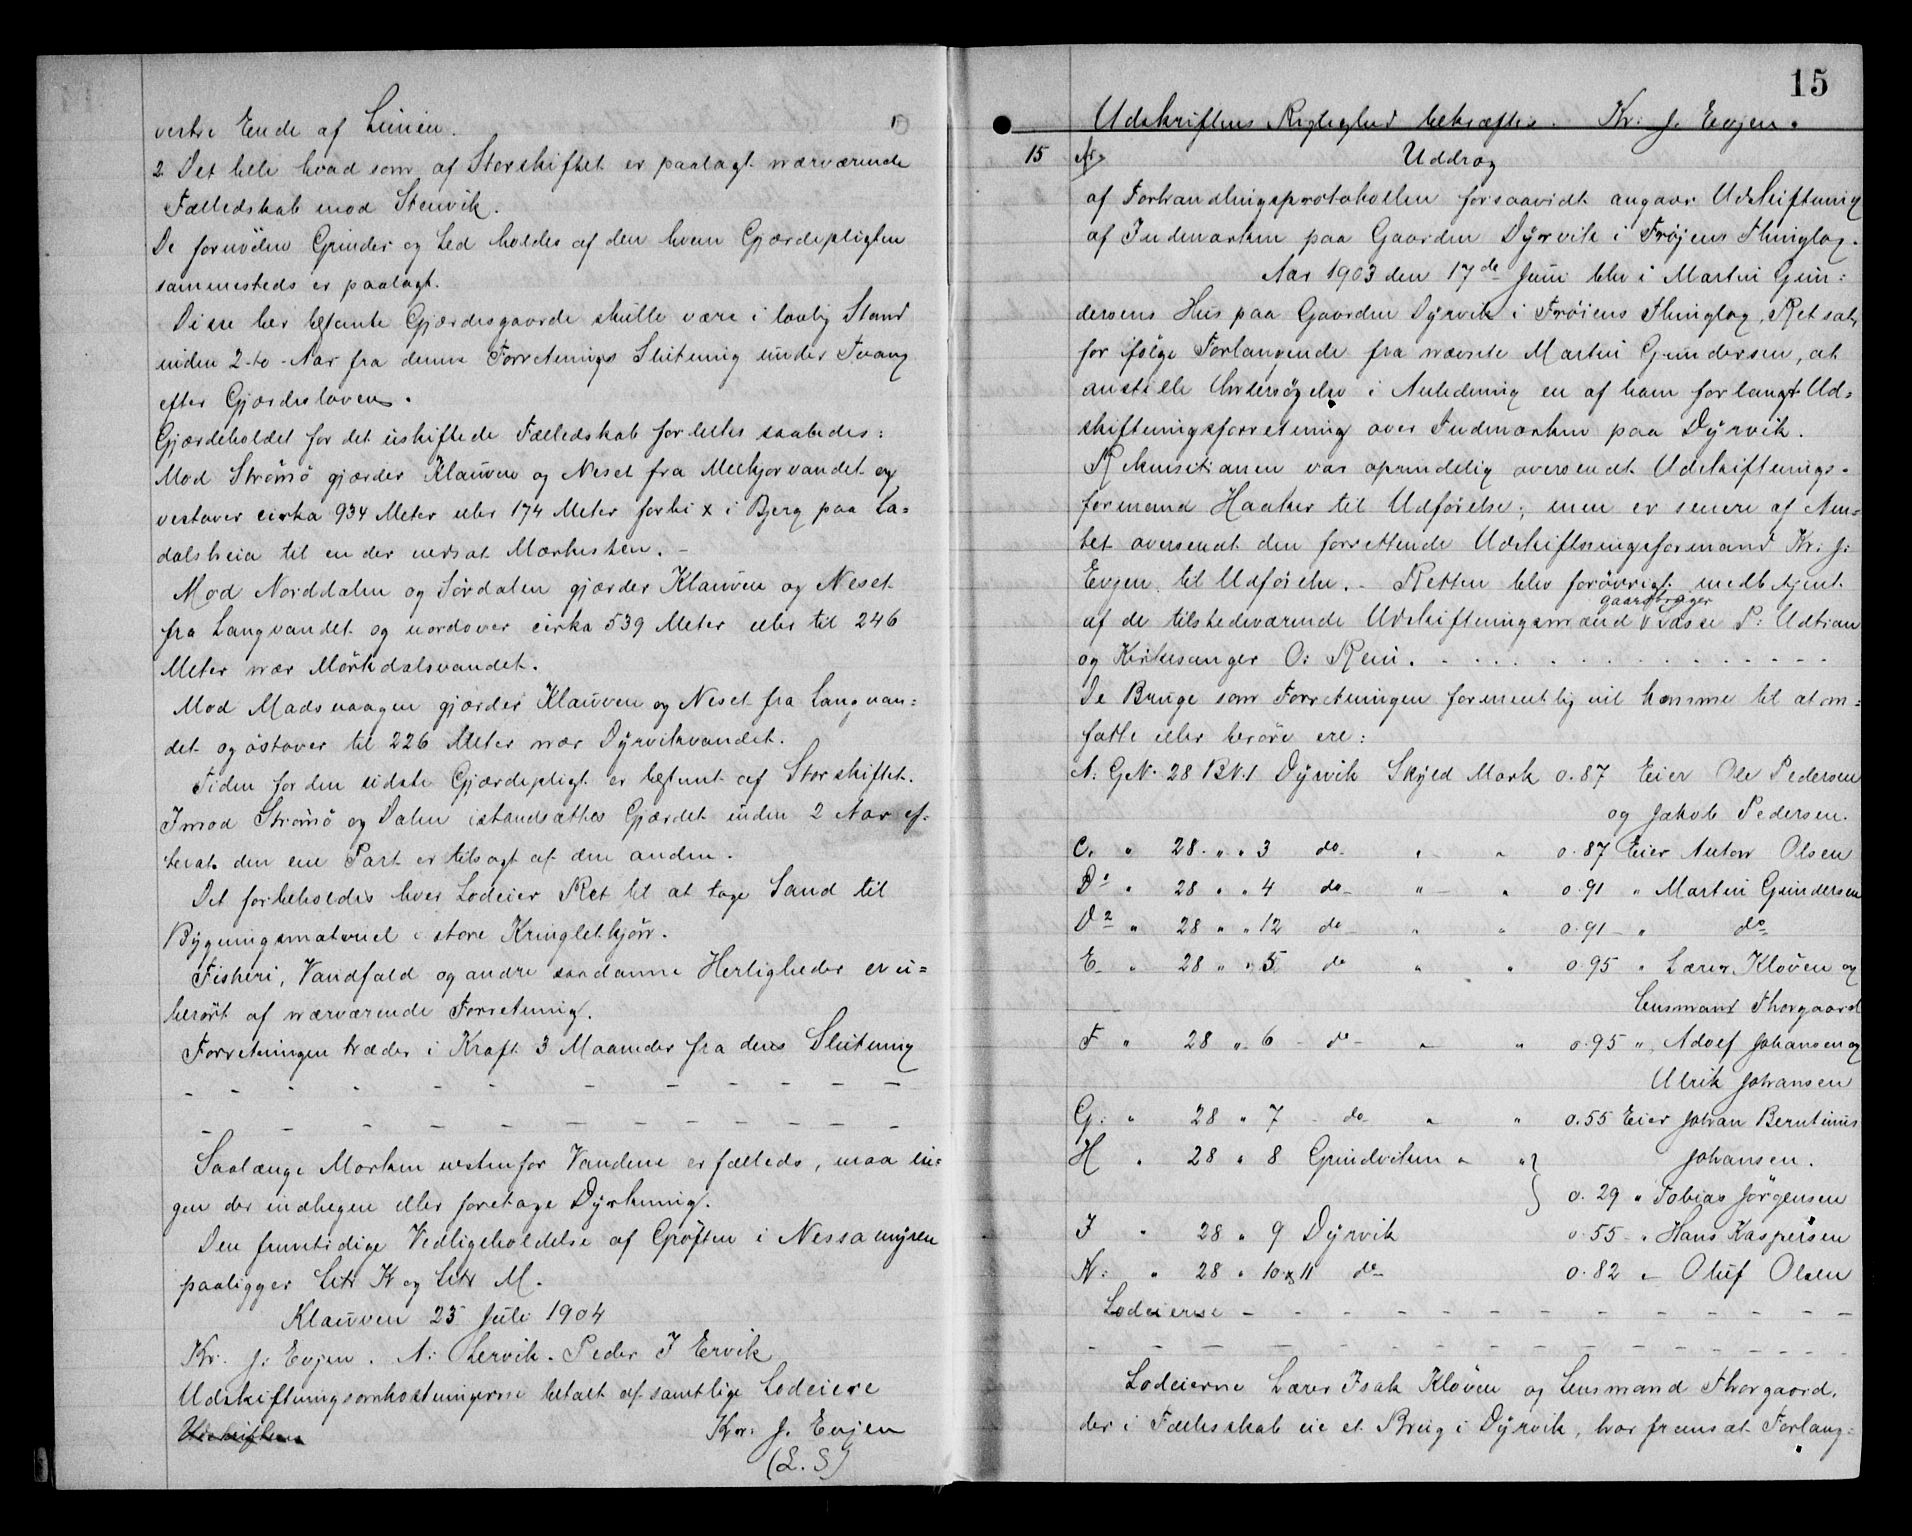 vestre Ende af Linien.
2. Det hele hvad som af Storskiftet er paalagt nærværende
Fælledskab mod Stenvik.
De fornödne Grinder og Led holdes af den hvem Gjærdepligten
sammesteds er paalagt.
Disse her bestemte Gjærdesgaarde skulle være i lovlig Stand
inden 2-to-Aar fra denne Forretnings Slutning under Tvang
efter Gjærdesloven.
Gjærdeholdet for det uskiftede Fælledskab fordeles saaledes:
Mod Strömö gjærder Klauven og Neset fra Melkjorvandet og
vestover cirka 934 Meter eller 174 Meter forbi x i Bjerg paa La=
dalsheia til en der nedsat Mærkesten. -
Mod Norddalen og Sördalen gjærder Klauven og Neset
fra Langvandet og nordover cirka 539 Meter eller til 246
Meter nær Mörkdalsvandet.
Mod Madsvaagen gjærder Klauven og Neset fra Langvan=
det og östover til 226 Meter nær Dyrvikvandet.
Tiden for den sidste Gjærdepligt er bestemt af Storskiftet.
Imod Strömö og Dalen istandsættes Gjærdet inden 2 Aar ef=
terat den ene Part er tilsagt af den anden.
Det forbeholdes hver Lodeier Ret til at tage Sand til
Bygningsmateriel i store Kringletkjörn.
Fiskeri, Vandfald og andre saadanne Herligheder er u=
berört af nærværende Forretning.
Forretningen træder i Kraft 3 Maaneder fra dens Slutning
- - - - - - - - - - - -
- - - - - - - - - - - -
Saalænge Marken vestenfor Vandene er fælleds, maa in=
gen der indhegne eller foretage Dyrkning.
Den fremtidige Vedligeholdelse af Gröften i Nessamyren
paaligger Litr K og Litr M.
Klauven 25 Juli 1904
Kr. J. Evjen. A: Lervik. Peder I Ervik
Udskiftningsomkostningerne betalt af samtlige Lodeiere
Kr. J. Evjen
(L. S)
15
Udskriftens Rigtighed bekræftes. Kr: J. Evjen.
15 No Uddrag
af Forhandlingsprotokollen forsaavidt angaar Udskiftning
af Indmarken paa Gaarden Dyrvik i Fröjens Thinglag.
Aar 1903 den 17de Juni blev i Martin Gun=
dersens Hus paa Gaarden Dyrvik i Fröiens Thinglag, Ret sat,
for ifölge Forlangende fra nævnte Martin Gundersen, at
anstille Undersögelse i Anledning en af ham forlangt Ud=
skiftningsforretning over Indmarken paa Dyrvik.
Rekvisitionen var oprindelig oversendt Udskiftnings=
formand Haaker til Udförelse; men er senere af Am=
tet oversendt den forrettende Udskiftningsformand Kr. J:
Evjen til Udförelse. - Retten blev forövrigt medbetjent
af de tilstedeværende Udskiftningsmænd gaardbruger Lasse P: Udtian
og Kirkesanger O: Rein. - - - - - - - - -
De Bruge som Forretningen formentlig vil komme til at om=
fatte eller beröre ere:
A: GN. 28 BN. 1 Dyrvik Skyld Mark 0.87 Eier Ole Pedersen
og Jakob Pedersen.
C. " 28 " " 3 do " " 0.87 Eier Anton Olsen
D1 " 28 " " 4 do " " 0.91 " Martin Gundersen
D2 " 28 " " 12 do " " 0.91 " do
E. " 28 " " 5 do " " 0.95 " Lærer Klöven og
Lensmand Thorgaard
F " 28 " 6 do " " 0.95 " Adolf Johansen og
Ulrik Johansen
G: " 28 " 7 do " " 0.55 Eier Johan Berntinus
H " 28 " 8 Grindviken " " } Johansen.
0.29 " Tobias Jörgensen
I " 28 " 9 Dyrvik 0.55 " Hans Kaspersen
N: " 28 " 10 & 11 do 0.82 " Oluf Olsen
Lodeierne - - - - - - - - -
- - - - - - - - - - - -
Lodeierne Lærer Isak Klöven og Lensmand Thorgaard,
der i Fællesskab eie et Brug i Dyrvik, har fremsat Forlang=